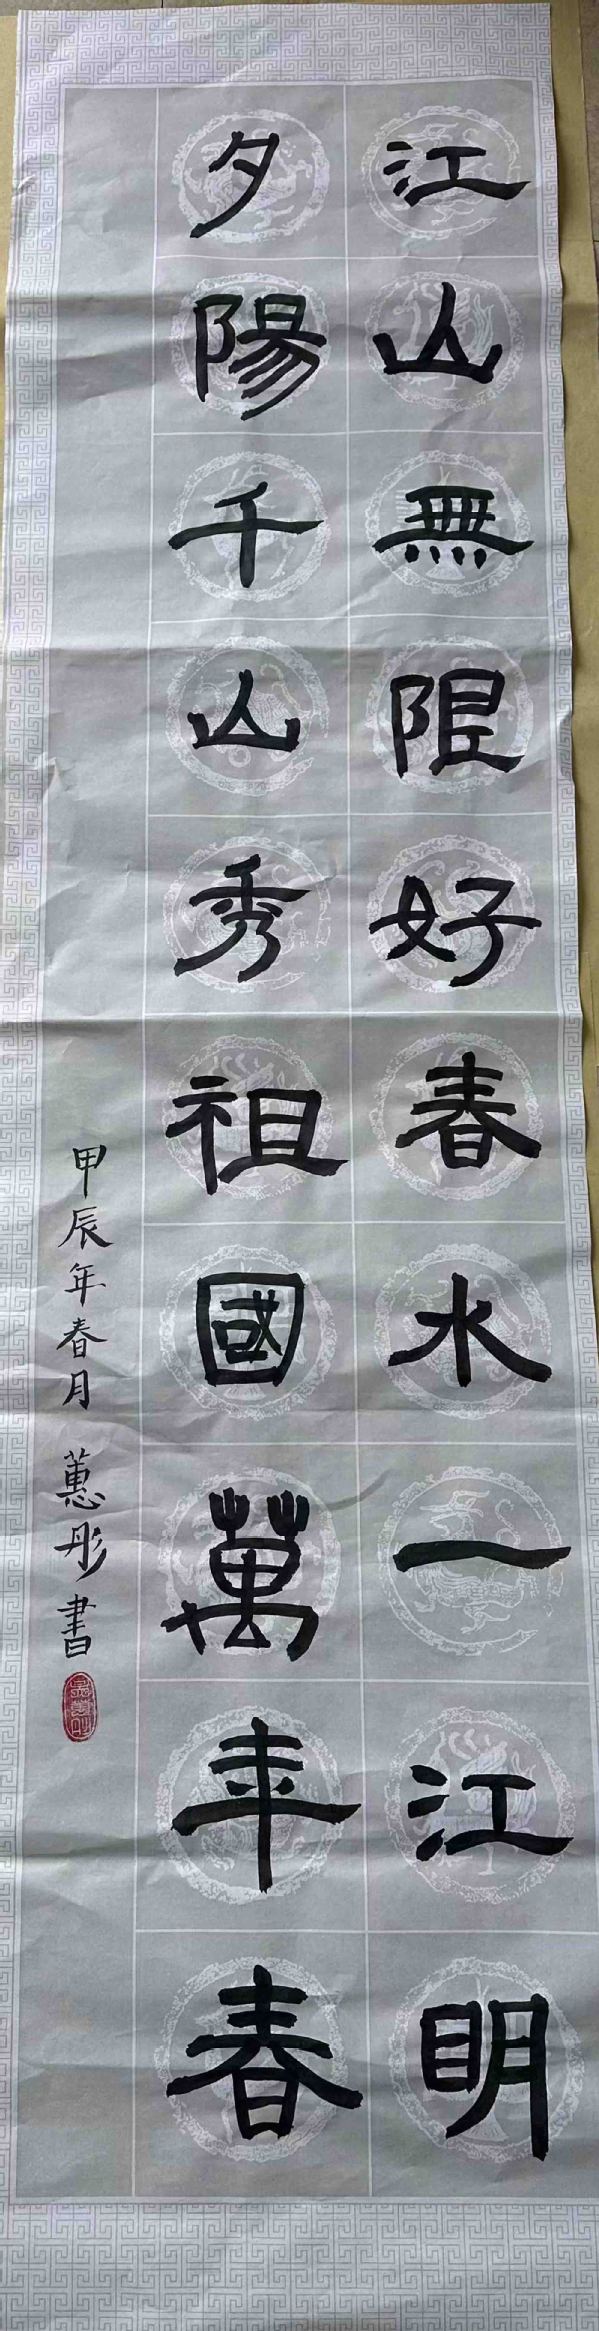 江山無限好春水一江明
夕陽千山秀祖國萬年春
甲辰年春月 蕙彤書